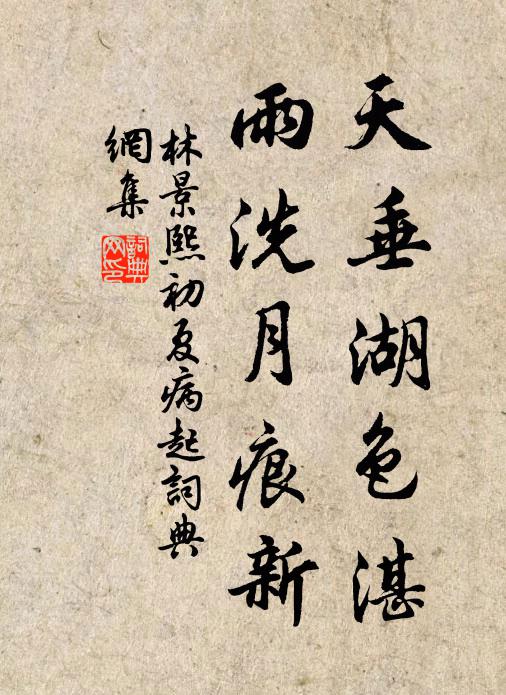 天垂湖色湛
雨洗月痕新
林景熙初夏病起詞典
網集
詞典网印